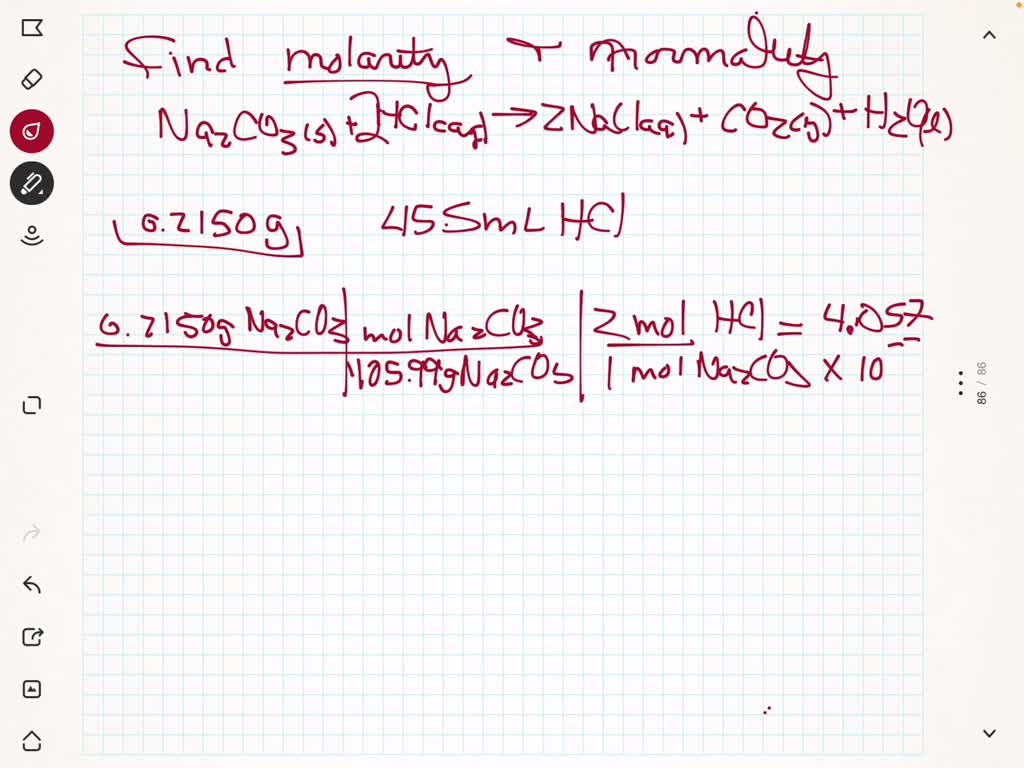 Find molarity + normality
Na2CO3(s) + 2HCl(aq) → 2NaCl(aq) + CO2(g) + H2O(l)
0.2150g 45.5mL HCl
0.2150g Na2CO3 | mol Na2CO3 | 2 mol HCl = 4.057
105.99g Na2CO3 | 1 mol Na2CO3 × 10
86 / 86